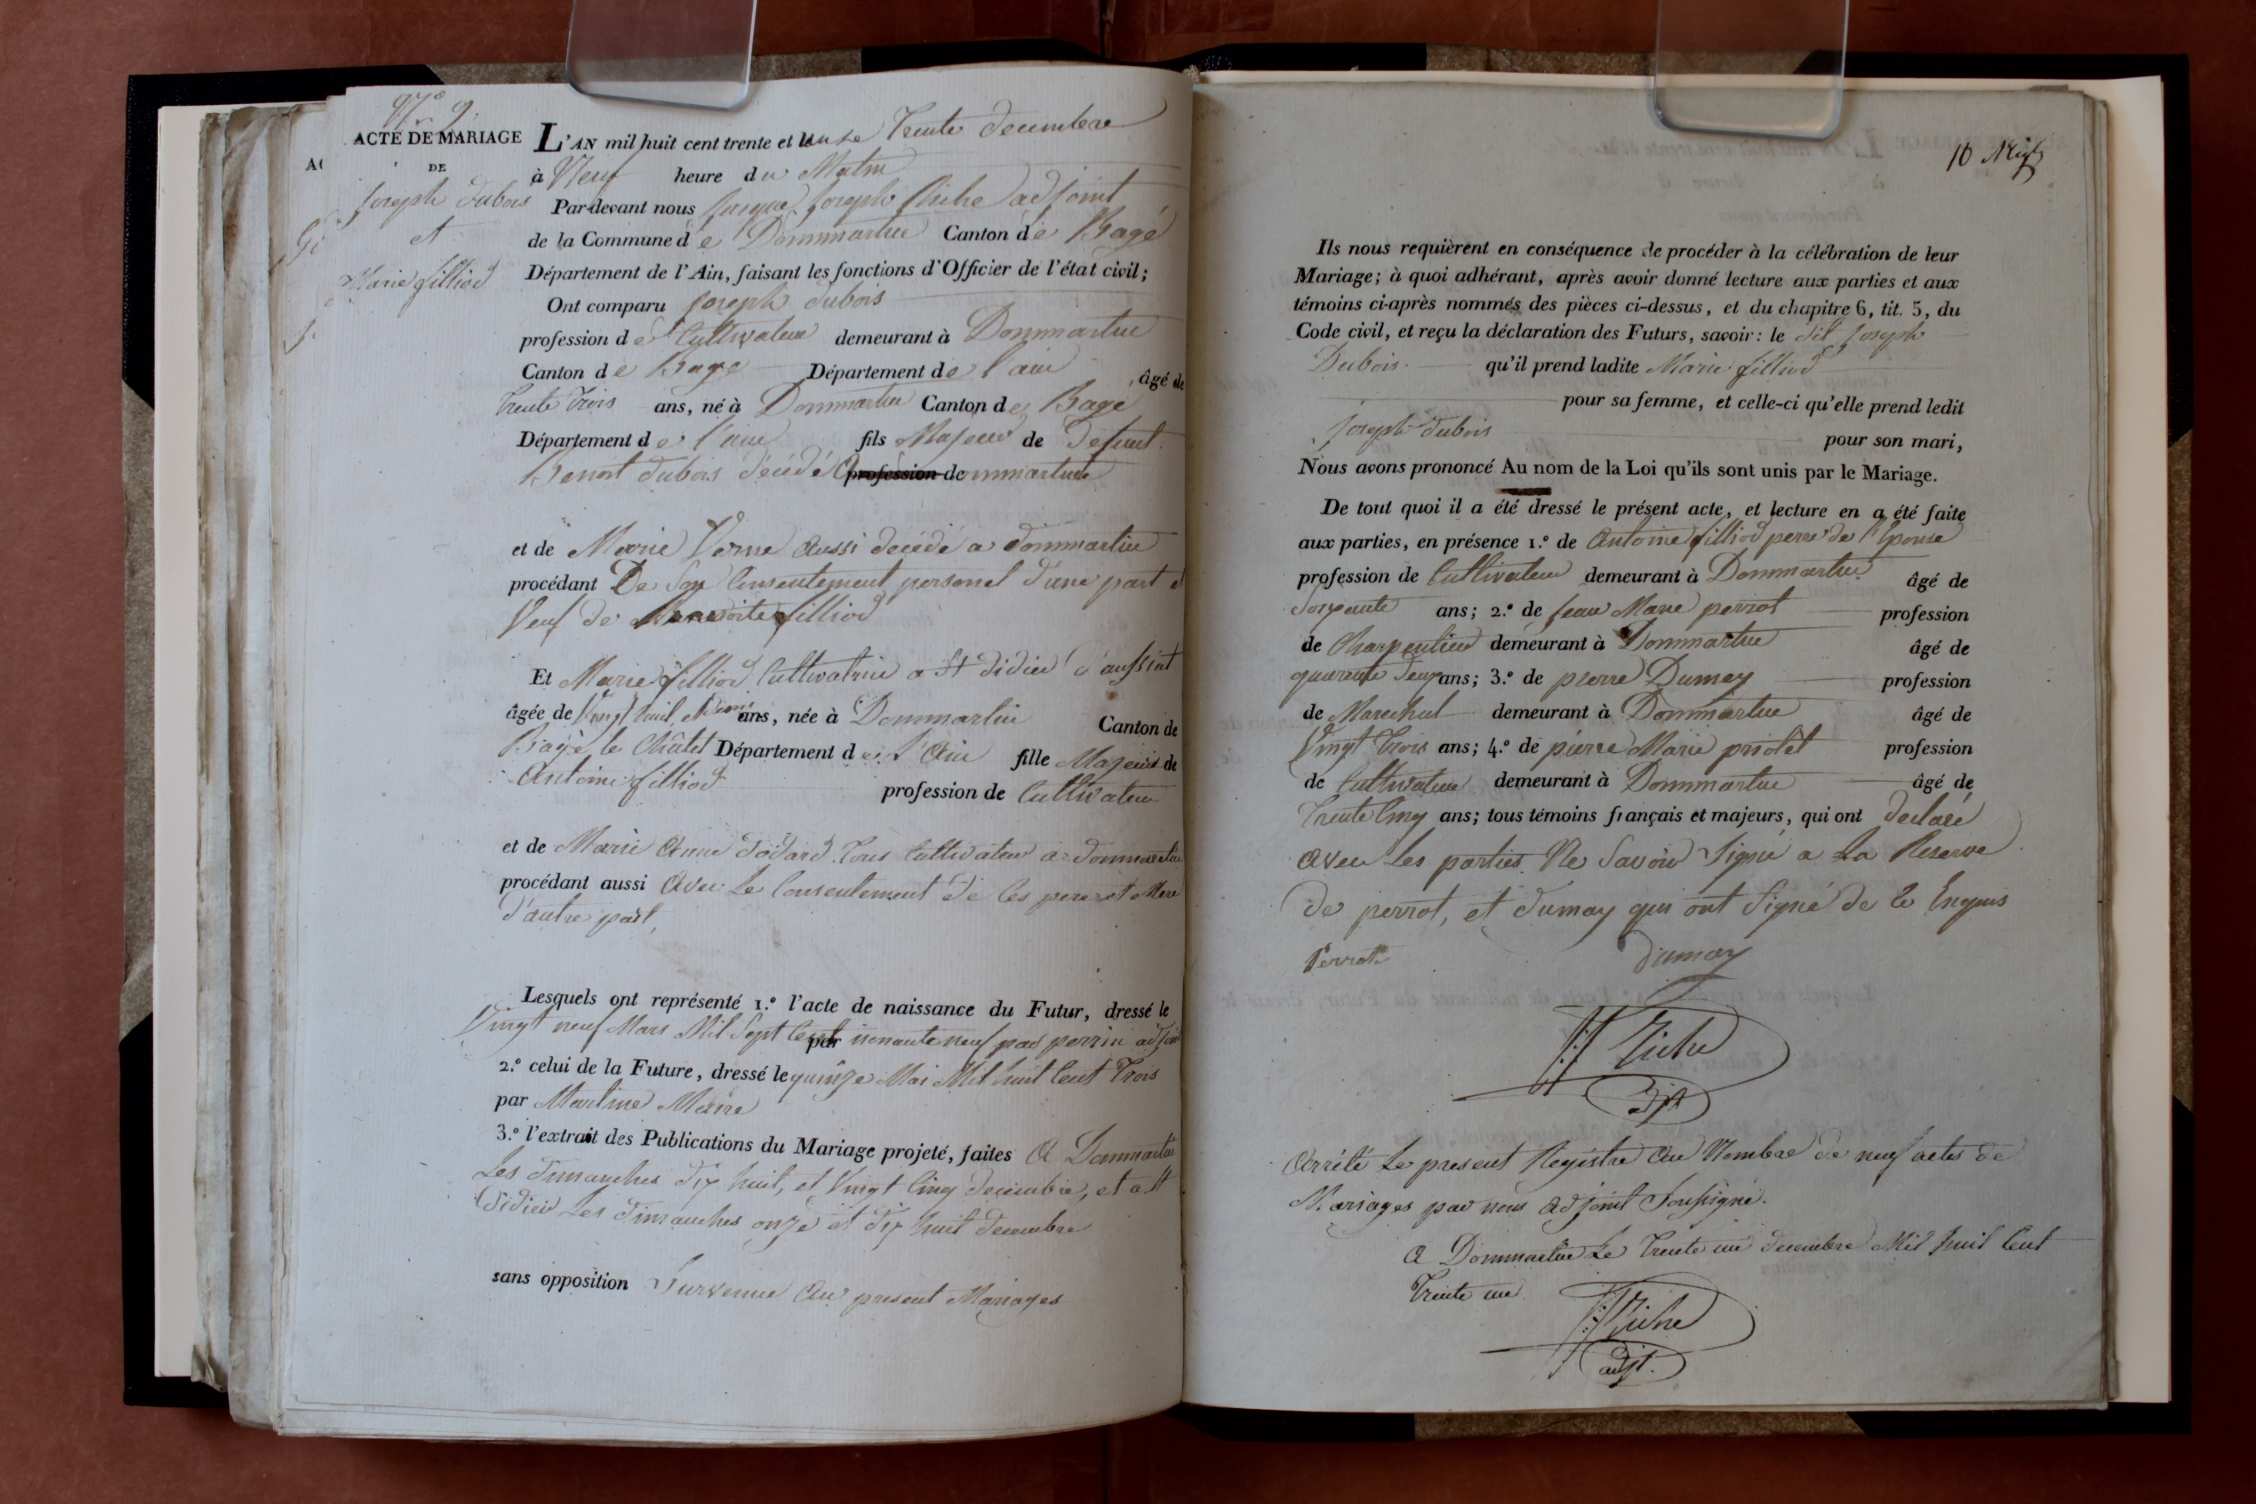 N.° 9.
ACTE DE MARIAGE
DE
Joseph dubois
et
Marie filliod
L'AN mil huit cent trente et un Le Trente decembre
à Neuf heure du Matin
Par-devant nous joseph Riche adjoint
de la Commune de Dommartin Canton de Bagé
Département de l'Ain, faisant les fonctions d'Officier de l'état civil;
Ont comparu joseph dubois
profession de Cultivateur demeurant à Dommartin
Canton de Bage Département de l'ain âgé de
trente trois ans, né à Dommartin Canton de Bage
Département de l'ain fils Majeur de defunt
Benoit dubois décédé a profession de dommartin
et de Marie Verne aussi decédé a dommartin
procédant De son Consentement personel d'une part et
Veuf de filliod
Et Marie filliod Cultivatrice a St didier d'aussiat
âgée de Vingt huit ans, née à Dommartin Canton de
Bagé le Châtel Département de l'Ain fille Majeure de
Antoine filliod profession de Cultivateur
et de Marie Anne Tous Cultivateur a dommartin
procédant aussi avec Le Consentement de Ces pere et Mere
d'autre part,
Lesquels ont représenté 1.° l'acte de naissance du Futur, dressé le
Vingt neuf Mars Mil Sept Cent par nonante neuf par perrin adjoint
2.° celui de la Future, dressé le quinze Mai Mil huit Cent Trois
par Martine Maire
3.° l'extrait des Publications du Mariage projeté, faites A Dommartin
Les dimanches dix huit, et Vingt Cinq decembre, et a St
Didier Les dimanches onze et dix huit decembre
sans opposition Survenue au present Mariages
10
Ils nous requièrent en conséquence de procéder à la célébration de leur
Mariage; à quoi adhérant, après avoir donné lecture aux parties et aux
témoins ci-après nommés des pièces ci-dessus, et du chapitre 6, tit. 5, du
Code civil, et reçu la déclaration des Futurs, savoir: le dit Joseph
Dubois qu'il prend ladite Marie filliod
pour sa femme, et celle-ci qu'elle prend ledit
joseph dubois pour son mari,
Nous avons prononcé Au nom de la Loi qu'ils sont unis par le Mariage.
De tout quoi il a été dressé le présent acte, et lecture en a été faite
aux parties, en présence 1.° de Antoine filliod perre de l'Epouse
profession de Cultivateur demeurant à Dommartin âgé de
Soixante ans; 2.° de jean Marie perrot profession
de Charpentier demeurant à Dommartin âgé de
quarente deux ans; 3.° de pierre Dumay profession
de Marechal demeurant à Dommartin âgé de
Vingt Trois ans; 4.° de pierre Marie profession
de Cultivateur demeurant à Dommartin âgé de
Trente Cinq ans; tous témoins français et majeurs, qui ont declaré
avec les parties Ne Savoir Signé a La Reserve
de perrot, et dumay qui ont Signé de Ce Enquis
Perrot dumay
Riche
adjt
Arrêté Le present Registre au Nombre de neuf actes de
Mariages par nous adjoint Soussigné.
A Dommartin Le Trente un decembre Mil huit Cent
Trente un
Riche
adjt.